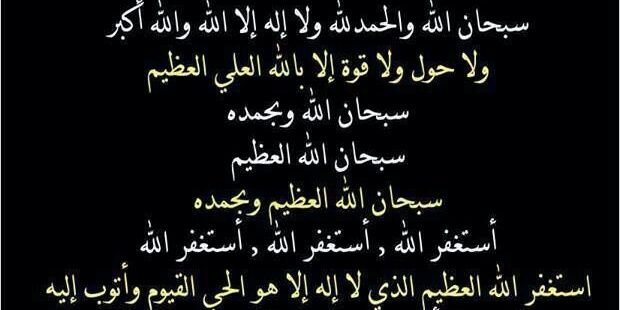 سبحان الله والحمدلله ولا إله إلا الله والله أكبر
ولا حول ولا قوة إلا بالله العلي العظيم
سبحان الله وبحمده
سبحان الله العظيم
سبحان الله العظيم وبحمده
أستغفر الله , أستغفر الله , أستغفر الله
استغفر الله العظيم الذي لا إله إلا هو الحي القيوم وأتوب إليه